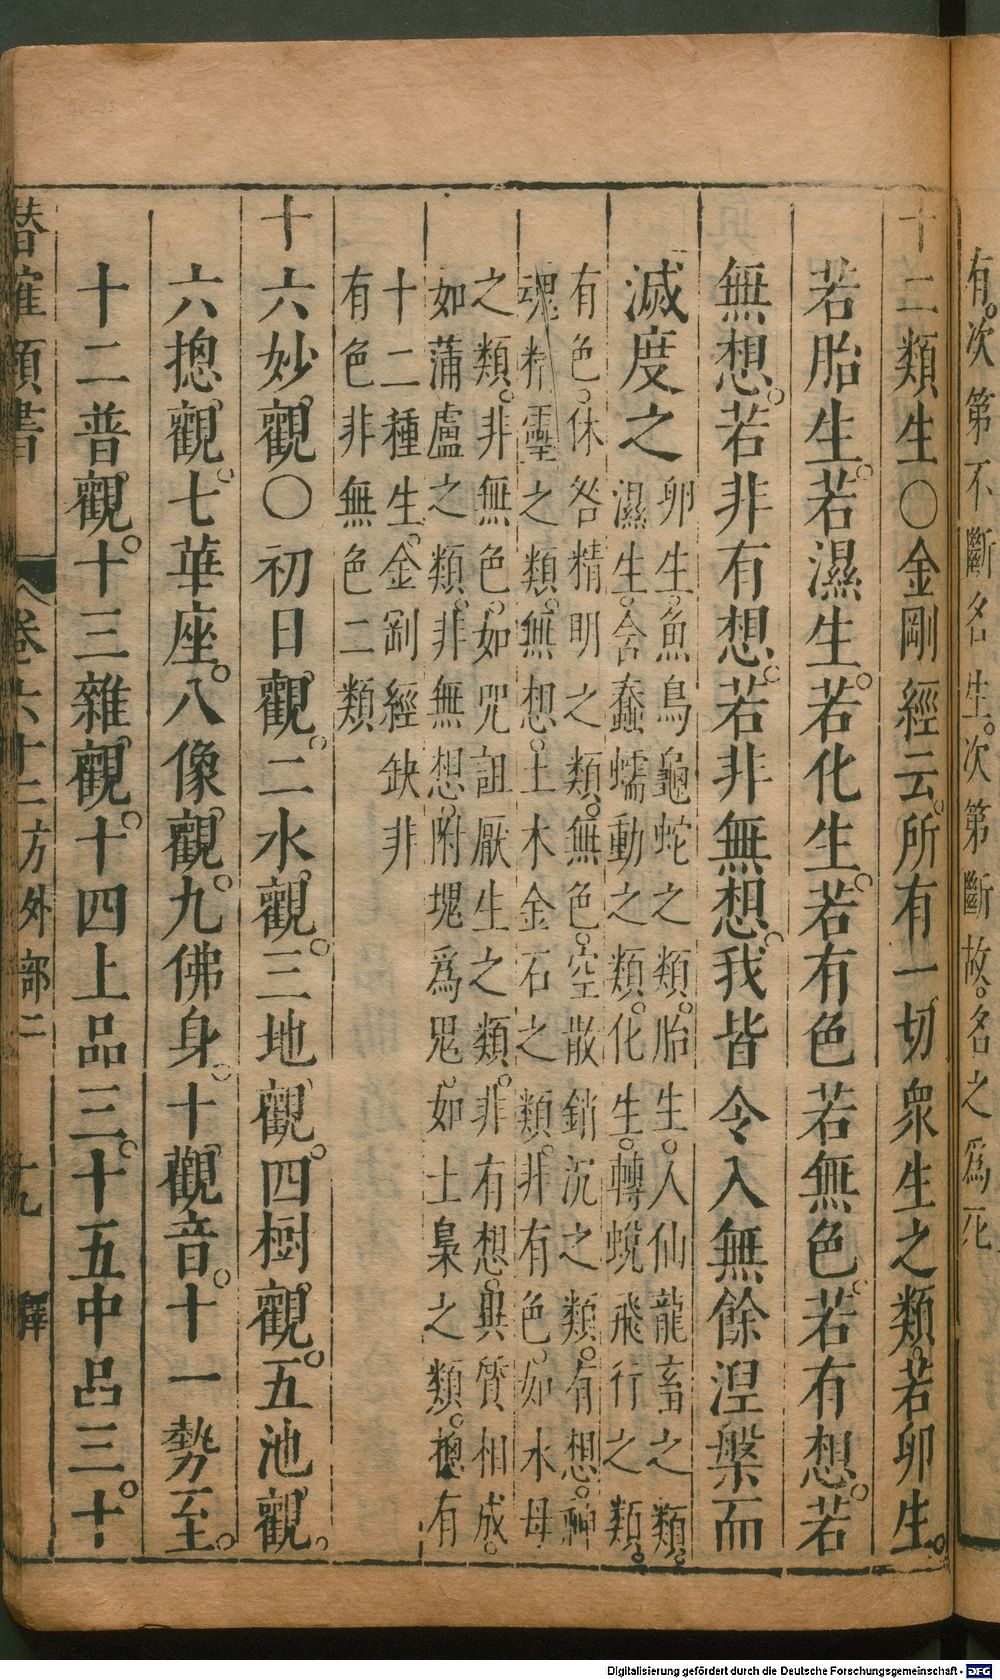 有。次第不斷名生。次第斷故。名之爲死
十二類生〇金剛經云。所有一切衆生之類。若卵生。
若胎生。若濕生。若化生。若有色若無色。若有想。若
無想。若非有想。若非無想。我皆令入無餘涅槃而
滅度之
卵生。魚鳥龜蛇之類。胎生。人仙龍畜之類。
濕生。含蠢蠕動之類。化生。轉蛻飛行之類。
有色。休咎精明之類。無色。空散銷沉之類。有想。神
魂精靈之類。無想。土木金石之類。非有色。如水母
之類。非無色。如咒詛厭生之類。非有想。與質相成。
如蒲盧之類。非無想。附塊爲兒。如土梟之類。摠有
十二種生。金剛經缺非
有色非無色二類
十六妙觀〇初日觀。二水觀。三地觀。四樹觀。五池觀。
六摠觀。七華座。八像觀。九佛身。十觀音。十一勢至。
十二普觀。十三雜觀。十四上品三。十五中品三。十
潛確類書
卷六十二方外部二
十九
釋
Digitalisierung gefördert durch die Deutsche Forschungsgemeinschaft - DFG